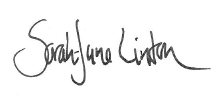 Sarah-Jane Linton